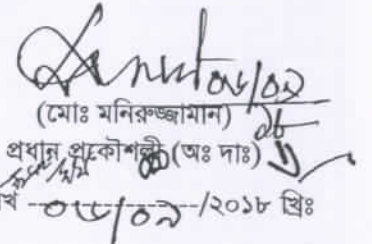 ০৬/০৯
১৮
(মোঃ মনিরুজ্জামান)
প্রধান প্রকৌশলী (অঃ দাঃ)
০৬/০৯/২০১৮ খ্রিঃ